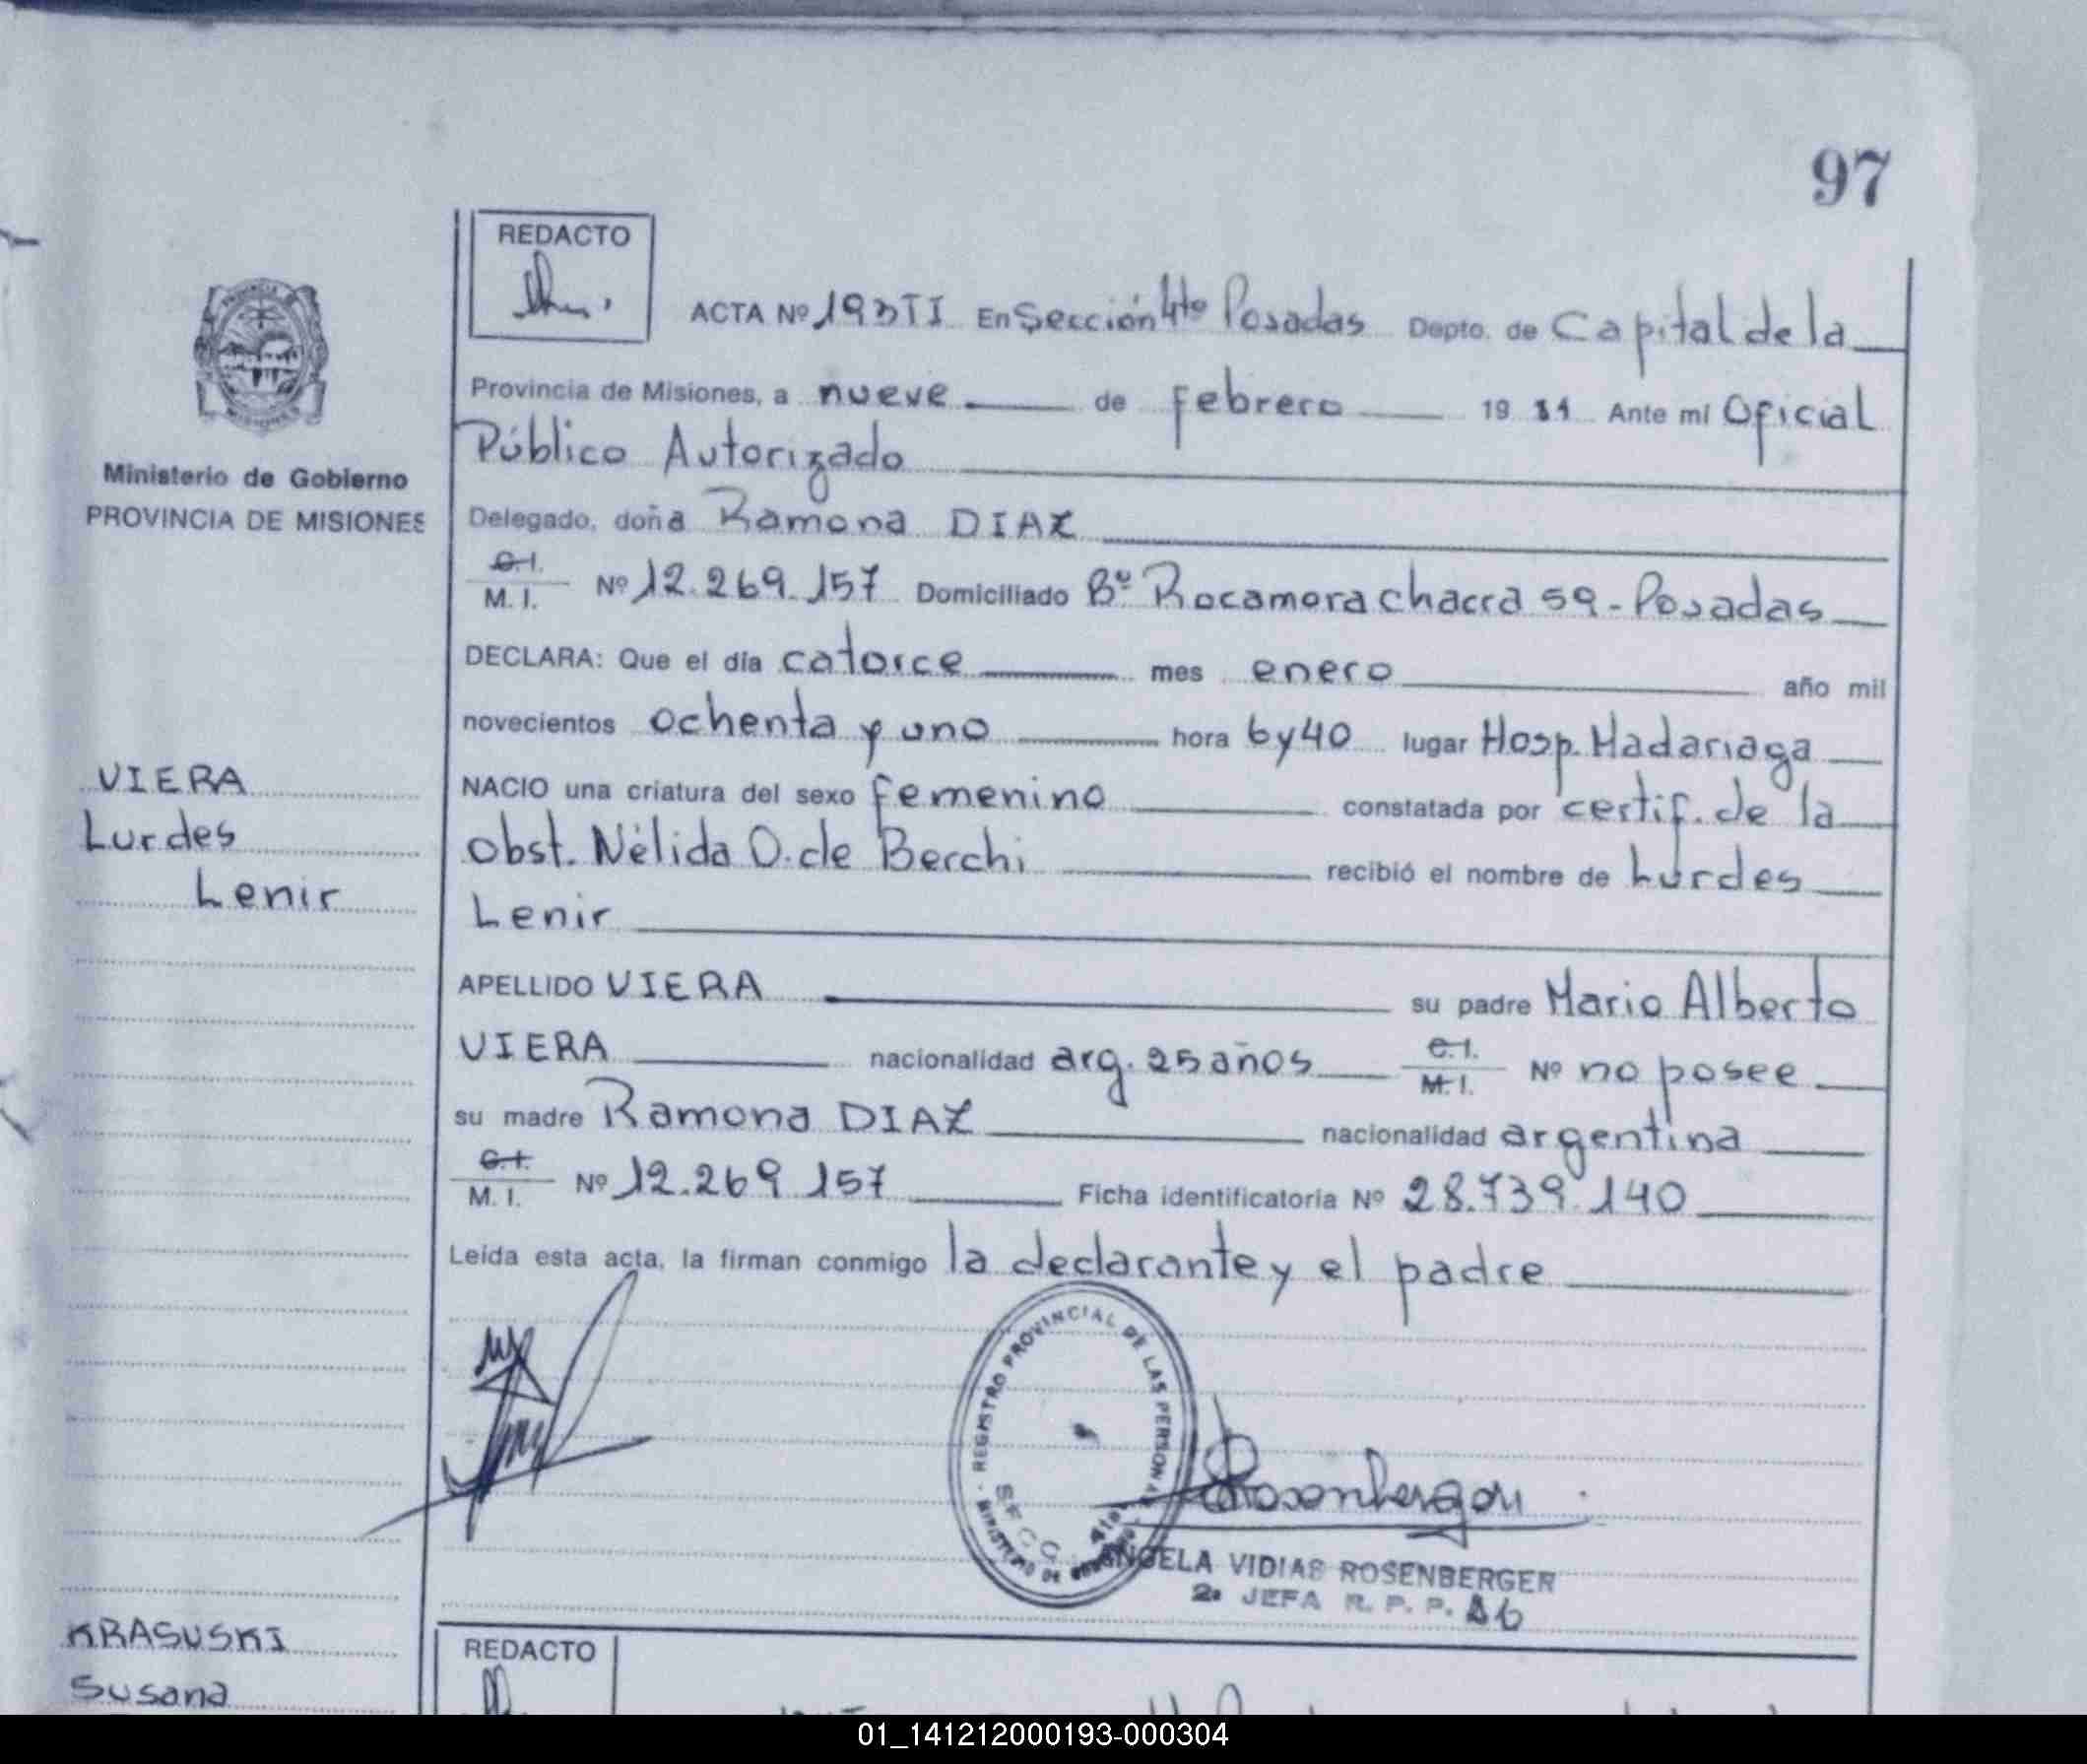 97
REDACTO
ACTA Nº 193TI En Sección 4to Posadas Depto. de Capital de la
Provincia de Misiones, a nueve de febrero 19 81 Ante mi Oficial
Público Autorizado
Ministerio de Gobierno
PROVINCIA DE MISIONES
Delegado, doña Ramona DIAZ
C.I.
M. I. Nº 12.269.157 Domiciliado Bº Rocamora chacra 59 - Posadas
DECLARA: Que el día catorce mes enero año mil
novecientos ochenta y uno hora 6y40 lugar Hosp. Madariaga
VIERA
Lurdes
Lenir
NACIO una criatura del sexo femenino constatada por certif. de la
obst. Nélida O. de Berchi recibió el nombre de Lurdes
Lenir
APELLIDO VIERA su padre Mario Alberto
VIERA nacionalidad arg. 25 años C.I. M.I. Nº no posee
su madre Ramona DIAZ nacionalidad argentina
C.I.
M. I. Nº 12.269.157 Ficha identificatoria Nº 28.739.140
Leída esta acta, la firman conmigo la declarante y el padre
REGISTRO PROVINCIAL DE LAS PERSONAS
MINISTERIO DE
SECC. 4ta
Rosenberger
ANGELA VIDIAS ROSENBERGER
2a JEFA R. P. P.
KRASUSKI
Susana
REDACTO
01_141212000193-000304